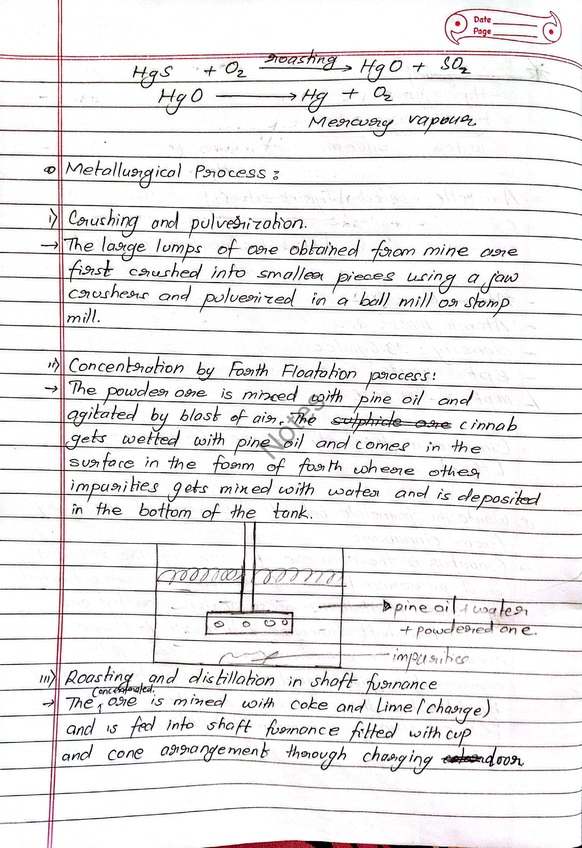 Date
Page
HgS + O2 roasting → HgO + SO2
HgO → Hg + O2
Mercury vapour
Metallurgical Process:
i) Crushing and pulverization.
→ The large lumps of ore obtained from mine are
first crushed into smaller pieces using a jaw
crushers and pulverized in a ball mill or stomp
mill.
ii) Concentration by Forth Floatation process:
→ The powder ore is mixed with pine oil and
agitated by blast of air. The sulphide ore cinnab
gets wetted with pine oil and comes in the
surface in the form of forth where other
impurities gets mixed with water and is deposited
in the bottom of the tank.
Notes
pine oil + water
+ powdered ore.
impurities
iii) Roasting and distillation in shaft furnance
→ The concentrated ore is mixed with coke and lime (charge)
and is fed into shaft furnance fitted with cup
and cone arrangement thorough charging door